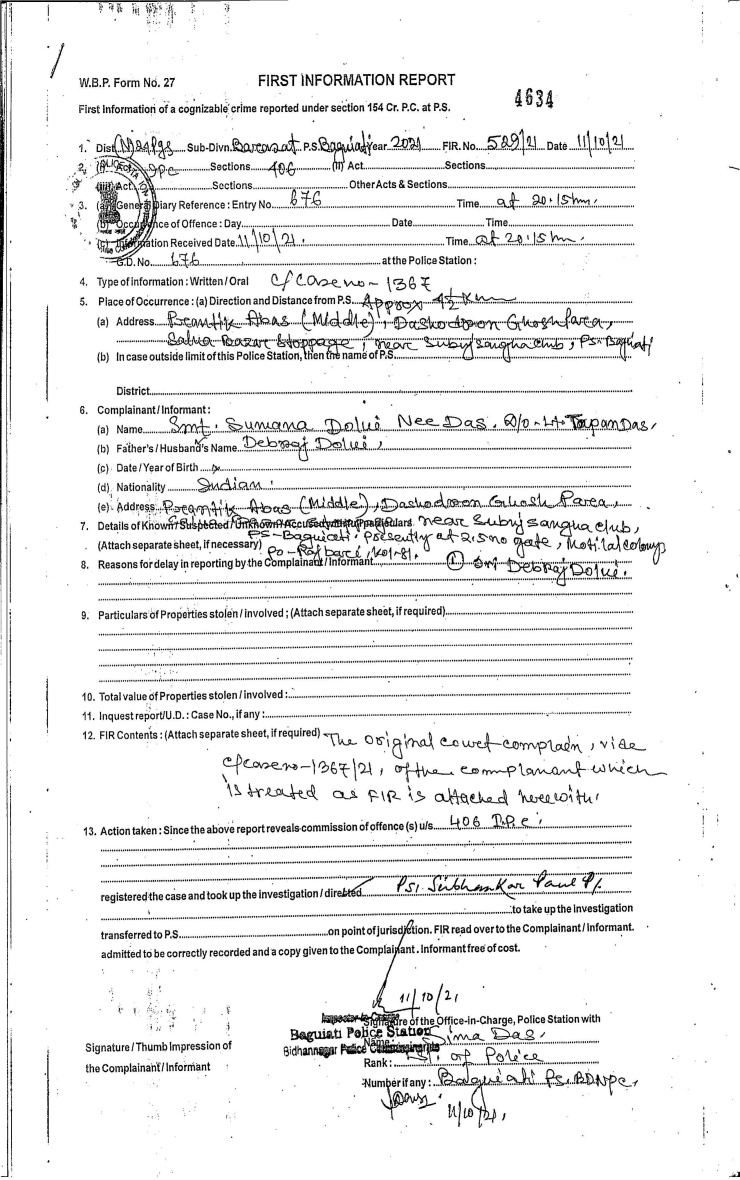 W.B.P. Form No. 27 FIRST INFORMATION REPORT
4634
First Information of a cognizable crime reported under section 154 Cr. P.C. at P.S.
1. Dist (N) 24 Pgs Sub-Divn. Barasat P.S. Baguiati Year 2021 FIR. No. 529/21 Date 11/10/21
2. (i) Act IPC Sections 406 (ii) Act Sections
(iii) Act Sections Other Acts & Sections
3. (a) General Diary Reference : Entry No. 676 Time at 20.15 hrs.
(b) Occurrence of Offence : Day Date Time
(c) Information Received Date 11/10/21. Time at 20.15 hrs.
G.D. No. 676 at the Police Station :
4. Type of information : Written / Oral C/Case no - 1367
5. Place of Occurrence : (a) Direction and Distance from P.S. Approx 4½ Km
(a) Address Prantik Abas (Middle), Dashodroon Ghosh Parea,
Salua Bazar Stoppage, near Subuj sangha club, PS - Baguiati
(b) In case outside limit of this Police Station, then the name of P.S.
District
6. Complainant / Informant :
(a) Name Smt. Sumana Dolui Nee Das. D/O - Lt. Tapan Das,
(b) Father's / Husband's Name Debraj Dolui,
(c) Date / Year of Birth x
(d) Nationality Indian
(e) Address Prantik Abas (Middle), Dashodroon Ghosh Parea,
7. Details of Known / Suspected / Unknown / Accused with full particulars near Subuj sangha club,
(Attach separate sheet, if necessary) PS - Baguiati. presently at 2.5 no gate, Motilal colony
Po - Rajbari, Kol-81.
8. Reasons for delay in reporting by the Complainant / Informant ① Sri Debraj Dolui.
9. Particulars of Properties stolen / involved ; (Attach separate sheet, if required)
10. Total value of Properties stolen / involved :
11. Inquest report/U.D. : Case No., if any :
12. FIR Contents : (Attach separate sheet, if required) The original court complain, vide
C/case no - 1367/21, of the complanant which
is treated as FIR is attached herewith.
13. Action taken : Since the above report reveals commission of offence (s) u/s 406 I.P.C.
registered the case and took up the investigation / directed PSI Subhankar Paul
to take up the Investigation
transferred to P.S. on point of jurisdiction. FIR read over to the Complainant / Informant.
admitted to be correctly recorded and a copy given to the Complainant. Informant free of cost.
11/10/21
Inspector-in-Charge
Signature of the Office-in-Charge, Police Station with
Baguiati Police Station
Name : Sima Das,
Bidhannagar Police Commissionerate
Signature / Thumb Impression of
Rank : SI of Police
the Complainant / Informant
Number if any : Baguiati PS. BDNPC,
11/10/21,